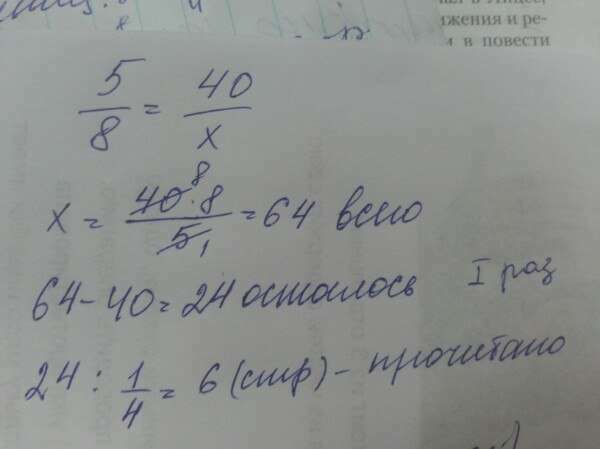 ижения и ре-
и в повести
5/8 = 40/x
x = 40⁸·8/5₁ = 64 всего
64-40=24 осталось I раз
24 : 1/4 = 6 (стр) - прочитано